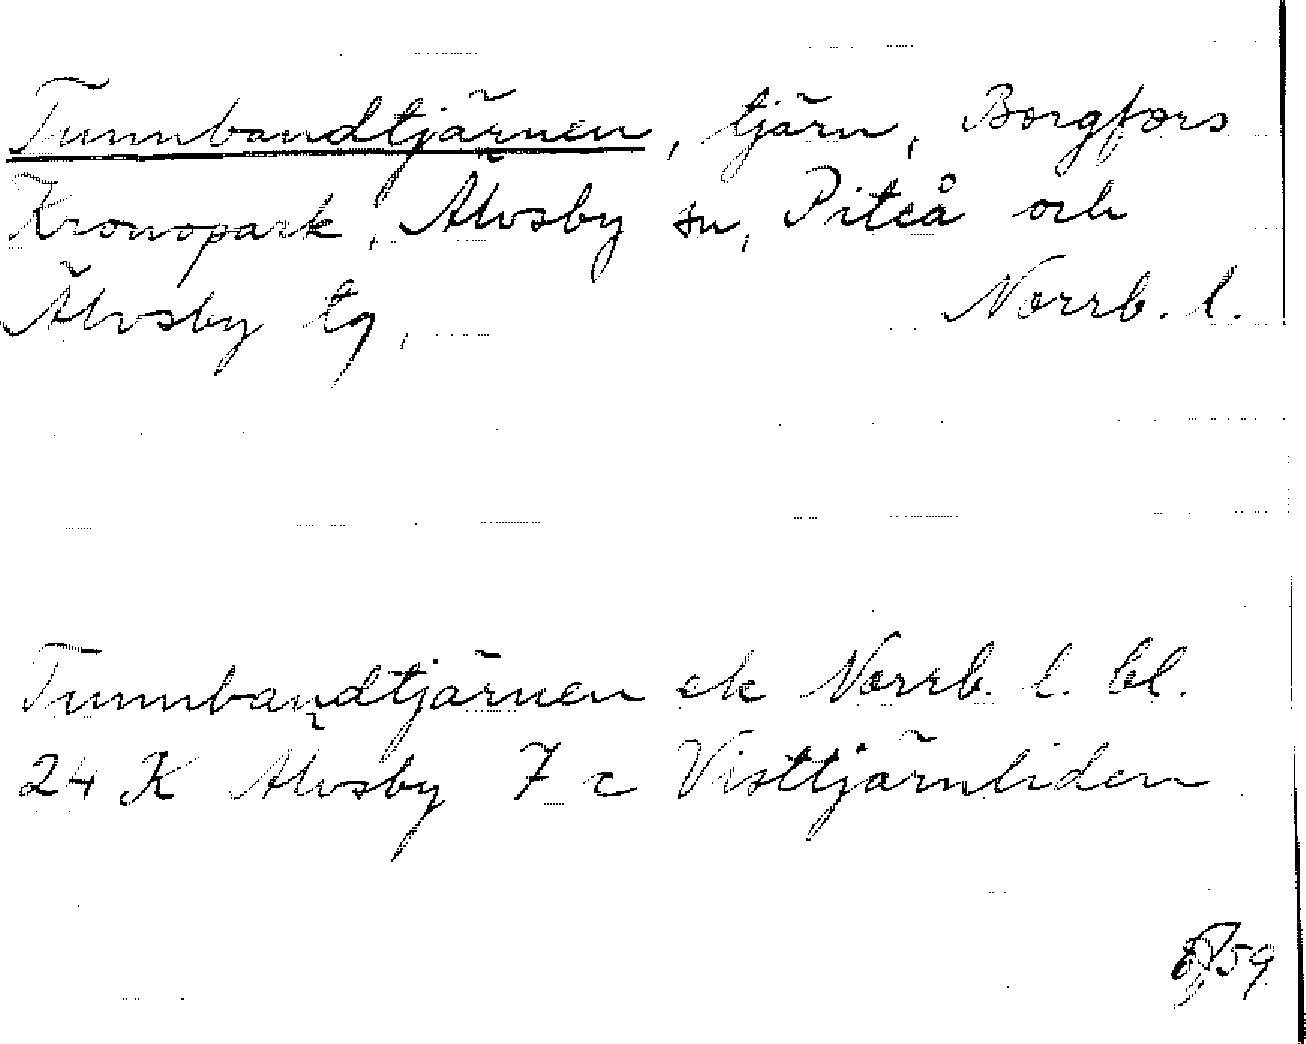 Tunnbandtjärnen, tjärn, Borgfors
Kronopark, Älvsby sn, Piteå och
Älvsby tg, Norrb. l.
Tunnbandtjärnen ek Norrb. l. bl.
24 K Älvsby 7 c Visttjärnliden
EP59